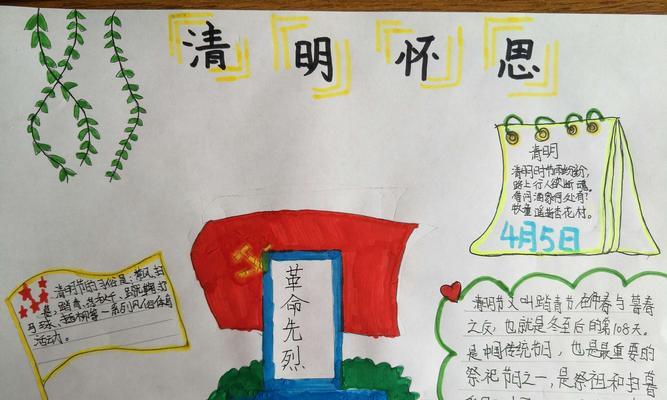 清明怀思
清明
清明时节雨纷纷,
路上行人欲断魂。
借问酒家何处有?
牧童遥指杏花村。
4月5日
清明节的习俗是:荡秋千
打马球、插柳等一系列风俗体育
活动。
革命先烈
清明节又叫踏青节,在仲春与暮春
之交,也就是冬至后的第108天。
是中国传统节日,也是最重要的
祭祀节日之一,是祭祖和扫墓